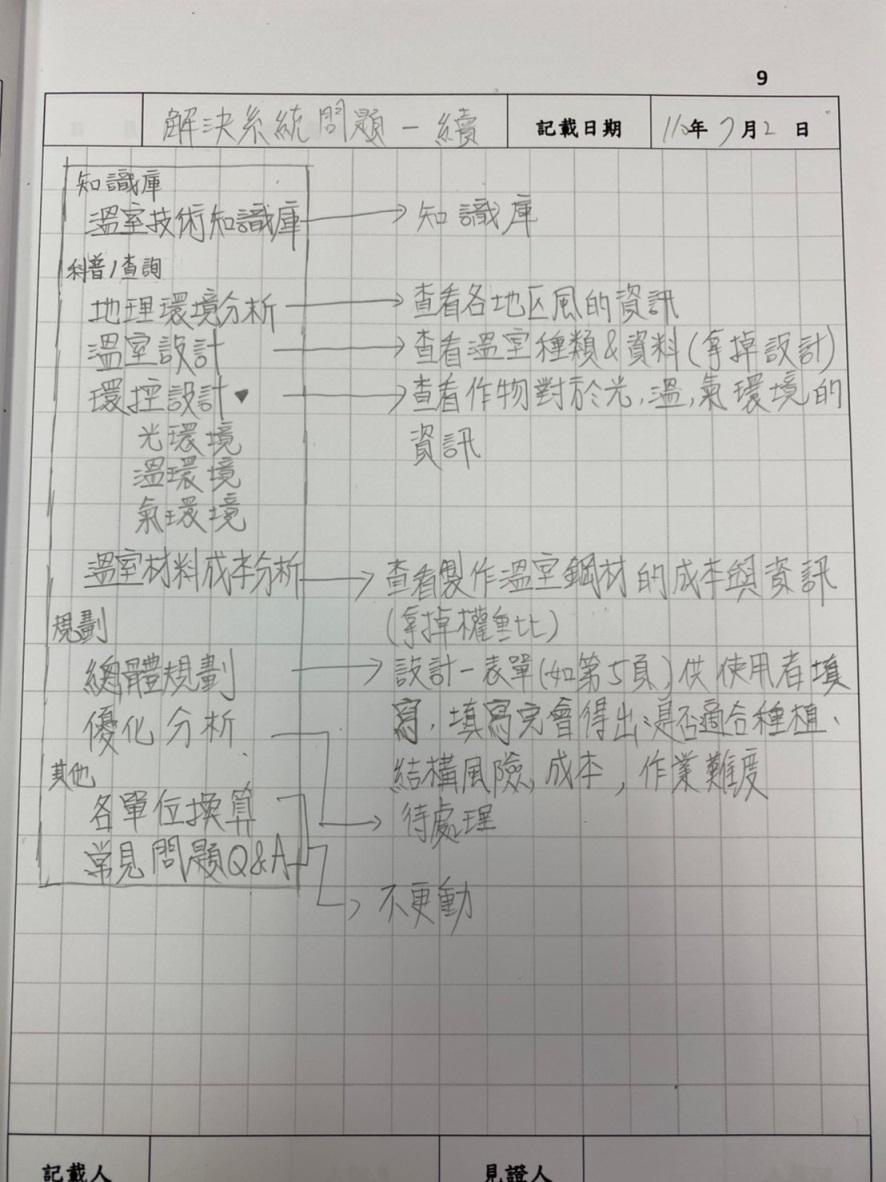 9
解決系統問題－續 記載日期 110年7月2日
知識庫
溫室技術知識庫 → 知識庫
科普/查詢
地理環境分析 → 查看各地区風的資訊
溫室設計 → 查看溫室種類&資料(拿掉設計)
環控設計▼ → 查看作物對於光,溫,氣環境的
光環境 資訊
溫環境
氣環境
溫室材料成本分析 → 查看製作溫室鋼材的成本與資訊
規劃 (拿掉權重比)
總體規劃 → 設計一表單(如第5頁)供使用者填
優化分析 寫,填寫完會得出:是否適合種植、
其他 結構風險,成本,作業難度
各單位換算 → 待處理
常見問題Q&A
→ 不更動
記載人 見證人